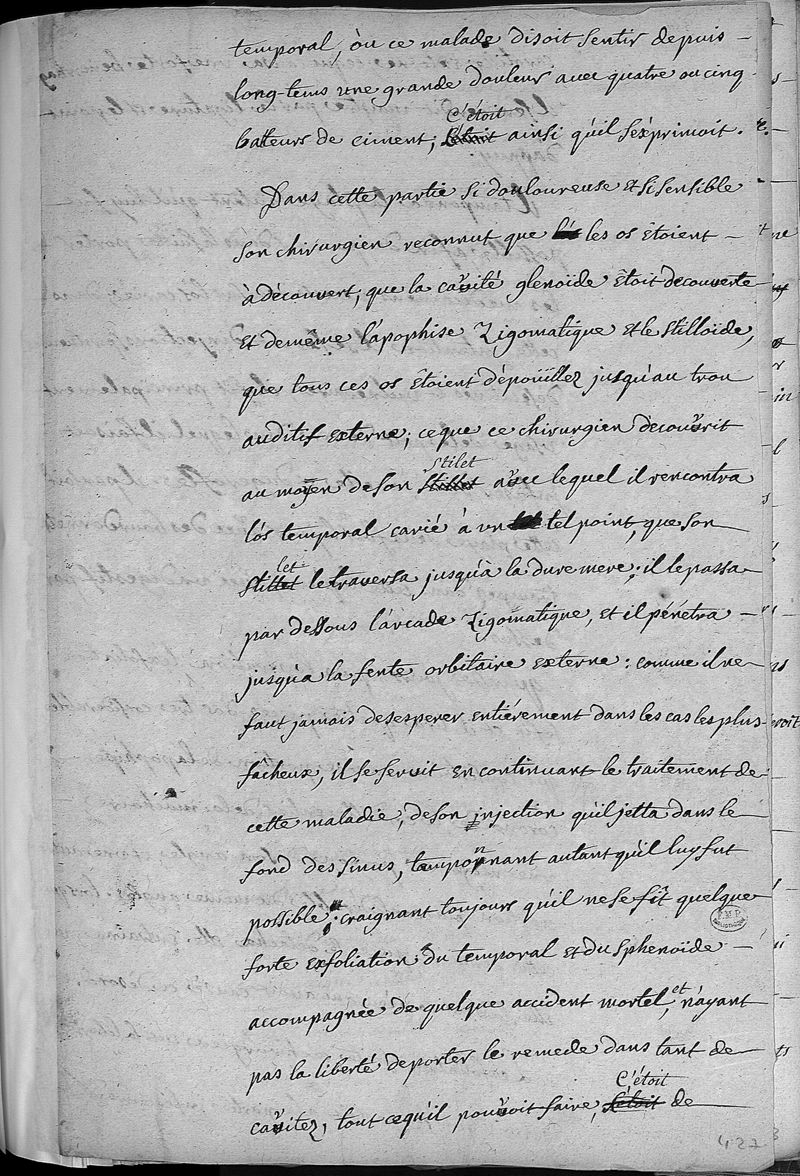 temporal, où ce malade disoit sentir depuis
long-tems une grande douleur avec quatre ou cinq
batteurs de ciment; C'étoit ainsi qu'il s'exprimoit.
Dans cette partie si douloureuse et si sensible
son chirurgien reconnut que les os étoient
à découvert, que la cavité glenoïde étoit découverte
et de même l'apophise Zigomatique et le stilloïde,
que tous ces os étoient dépoüillez jusqu'au trou
auditif externe; ce que ce chirurgien découvrit
au moyen de son stilet avec lequel il rencontra
l'os temporal carié à un tel point, que son
stilet le traversa jusqu'à la dure mere; il le passa
par dessous l'arcade Zigomatique, et il pénétra
jusqu'a la fente orbitaire externe: comme il ne
faut jamais desesperer entiérement dans les cas les plus
fâcheux, il se servit en continuant le traitement de
cette maladie, de son injection qu'il jetta dans le
fond des sinus, temponnant autant qu'il luy fut
possible; craignant toujours qu'il ne se fît quelque
forte exfoliation du temporal et du sphenoïde
accompagnée de quelque accident mortel, et n'ayant
pas la liberté de porter le remede dans tant de
cavitez, tout ce qu'il pouvoit faire, C'étoit de
427